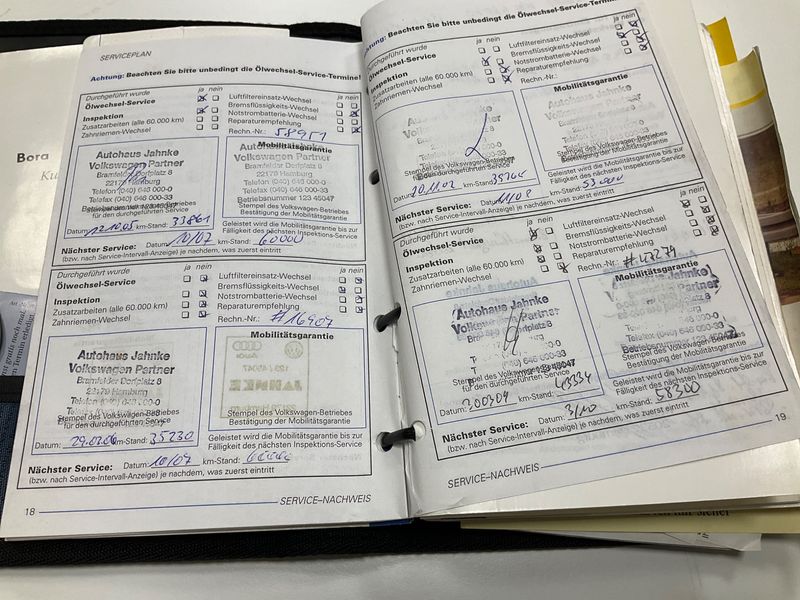 Bora
SERVICEPLAN
Achtung: Beachten Sie bitte unbedingt die Ölwechsel-Service-Termine!
Durchgeführt wurde ja nein
Ölwechsel-Service
Inspektion
Zusatzarbeiten (alle 60.000 km)
Zahnriemen-Wechsel
ja nein
Luftfiltereinsatz-Wechsel
Bremsflüssigkeits-Wechsel
Notstrombatterie-Wechsel
Reparaturempfehlung
Rechn.-Nr.: 58951
Autohaus Jahnke
Volkswagen Partner
Bramfelder Dorfplatz 8
22179 Hamburg
Telefon (040) 646 000-0
Telefax (040) 646 000-33
für den durchgeführten Service
Datum: 12.10.05 km-Stand: 33861
Mobilitätsgarantie
Autohaus Jahnke
Volkswagen Partner
Bramfelder Dorfplatz 8
22179 Hamburg
Telefon (040) 646 000-0
Telefax (040) 646 000-33
Betriebsnummer 123 45047
Stempel des Volkswagen-Betriebes
Bestätigung der Mobilitätsgarantie
Geleistet wird die Mobilitätsgarantie bis zur
Fälligkeit des nächsten Inspektions-Service
Nächster Service: Datum: 10/07 km-Stand: 60000
(bzw. nach Service-Intervall-Anzeige) je nachdem, was zuerst eintritt
Durchgeführt wurde ja nein
Ölwechsel-Service
Inspektion
Zusatzarbeiten (alle 60.000 km)
Zahnriemen-Wechsel
ja nein
Luftfiltereinsatz-Wechsel
Bremsflüssigkeits-Wechsel
Notstrombatterie-Wechsel
Reparaturempfehlung
Rechn.-Nr.: #16907
Autohaus Jahnke
Volkswagen Partner
Bramfelder Dorfplatz 8
22179 Hamburg
Stempel des Volkswagen-Betriebes
für den durchgeführten Service
Datum: 29.03.06 km-Stand: 35230
Mobilitätsgarantie
Stempel des Volkswagen-Betriebes
Bestätigung der Mobilitätsgarantie
Geleistet wird die Mobilitätsgarantie bis zur
Fälligkeit des nächsten Inspektions-Service
Nächster Service: Datum: 10/07 km-Stand: 60000
(bzw. nach Service-Intervall-Anzeige) je nachdem, was zuerst eintritt
18 SERVICE–NACHWEIS
Achtung: Beachten Sie bitte unbedingt die Ölwechsel-Service-Termine!
Durchgeführt wurde ja nein
Ölwechsel-Service
Inspektion
Zusatzarbeiten (alle 60.000 km)
Zahnriemen-Wechsel
ja nein
Luftfiltereinsatz-Wechsel
Bremsflüssigkeits-Wechsel
Notstrombatterie-Wechsel
Reparaturempfehlung
Rechn.-Nr.:
Autohaus Jahnke
Volkswagen Partner
Stempel des Volkswagen-Betriebes
für den durchgeführten Service
Datum: km-Stand:
Mobilitätsgarantie
Autohaus Jahnke
Stempel des Volkswagen-Betriebes
Bestätigung der Mobilitätsgarantie
Geleistet wird die Mobilitätsgarantie bis zur
Fälligkeit des nächsten Inspektions-Service
Nächster Service: Datum: km-Stand: 53000
(bzw. nach Service-Intervall-Anzeige) je nachdem, was zuerst eintritt
Durchgeführt wurde ja nein
Ölwechsel-Service
Inspektion
Zusatzarbeiten (alle 60.000 km)
Zahnriemen-Wechsel
ja nein
Luftfiltereinsatz-Wechsel
Bremsflüssigkeits-Wechsel
Notstrombatterie-Wechsel
Reparaturempfehlung
Rechn.-Nr.:
Autohaus Jahnke
Volkswagen Partner
Stempel des Volkswagen-Betriebes
für den durchgeführten Service
Datum: 200309 km-Stand: 43334
Mobilitätsgarantie
Stempel des Volkswagen-Betriebes
Bestätigung der Mobilitätsgarantie
Geleistet wird die Mobilitätsgarantie bis zur
Fälligkeit des nächsten Inspektions-Service
Nächster Service: Datum: 3/10 km-Stand: 58300
(bzw. nach Service-Intervall-Anzeige) je nachdem, was zuerst eintritt
SERVICE–NACHWEIS 19